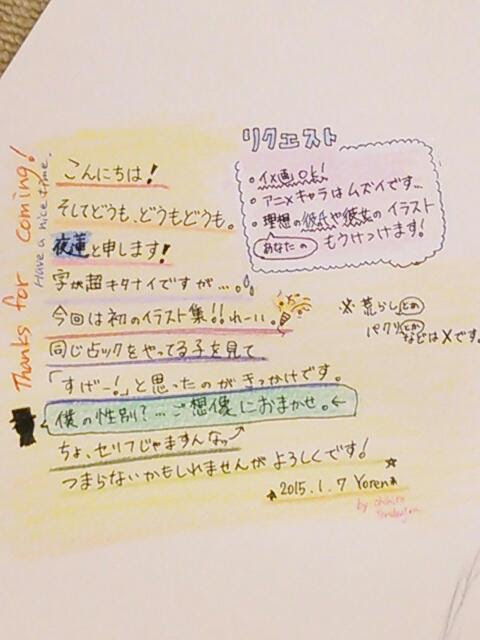 Thanks for coming!
Have a nice time.
こんにちは!
そしてどうも、どうもどうも。
夜蓮と申します!
字が超キタナイですが…。
今回は初のイラスト集!!わーい。
同じ占ックをやってる子を見て
「すげー!」と思ったのがきっかけです。
僕の性別?…ご想像におまかせ。←
ちょ、セリフじゃますんなっ
つまらないかもしれませんが よろしくです!
2015.1.7 Yoren
by
リクエスト
・イメ画OK!
・アニメキャラはムズイです…
・理想の彼氏や彼女のイラスト
あなたの
もうけつけます!
※荒らしとか
パクリとか
などは×です。